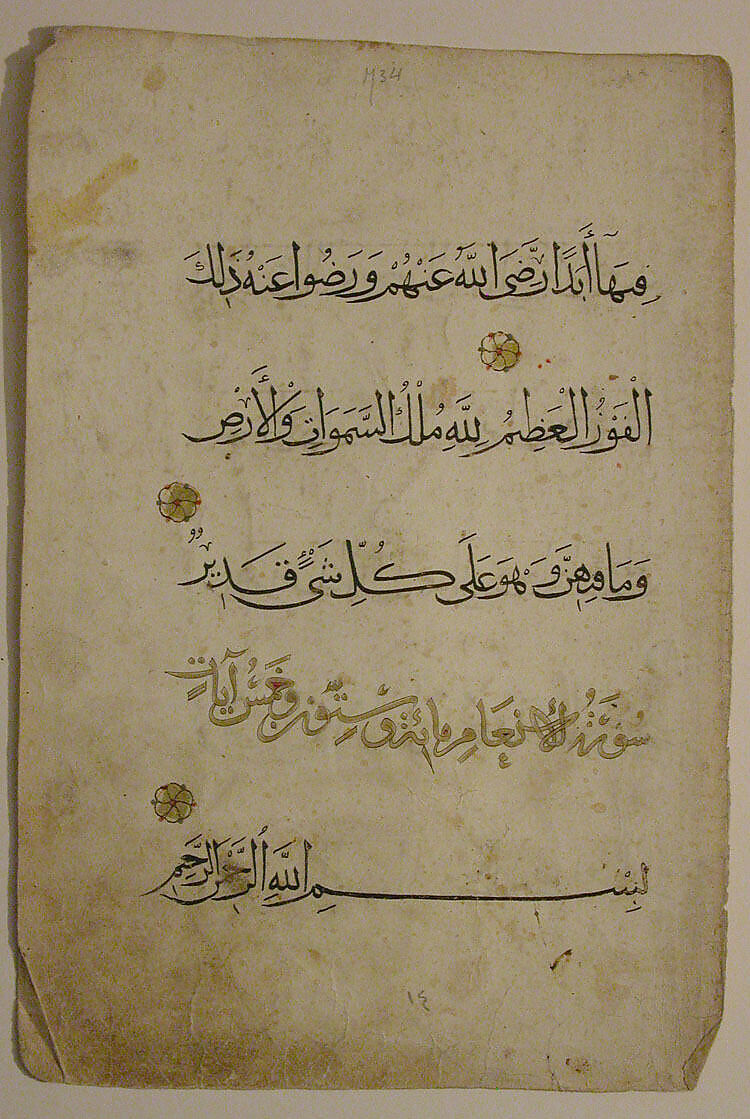 M34
فِيهَآ أَبَدًا رَّضِىَ اللَّهُ عَنْهُمْ وَرَضُوا عَنْهُ ذَلِكَ
الْفَوْزُ الْعَظِيمُ لِلَّهِ مُلْكُ السَّمَوَاتِ وَالْأَرْضِ
وَمَا فِيهِنَّ وَهُوَ عَلَى كُلِّ شَىْءٍ قَدِيرٌ
سُورَةُ الْأَنْعَامِ مِائَةٌ وَسِتُّونَ وَخَمْسُ آيَاتٍ
بِسْمِ اللَّهِ الرَّحْمَنِ الرَّحِيمِ
١٤